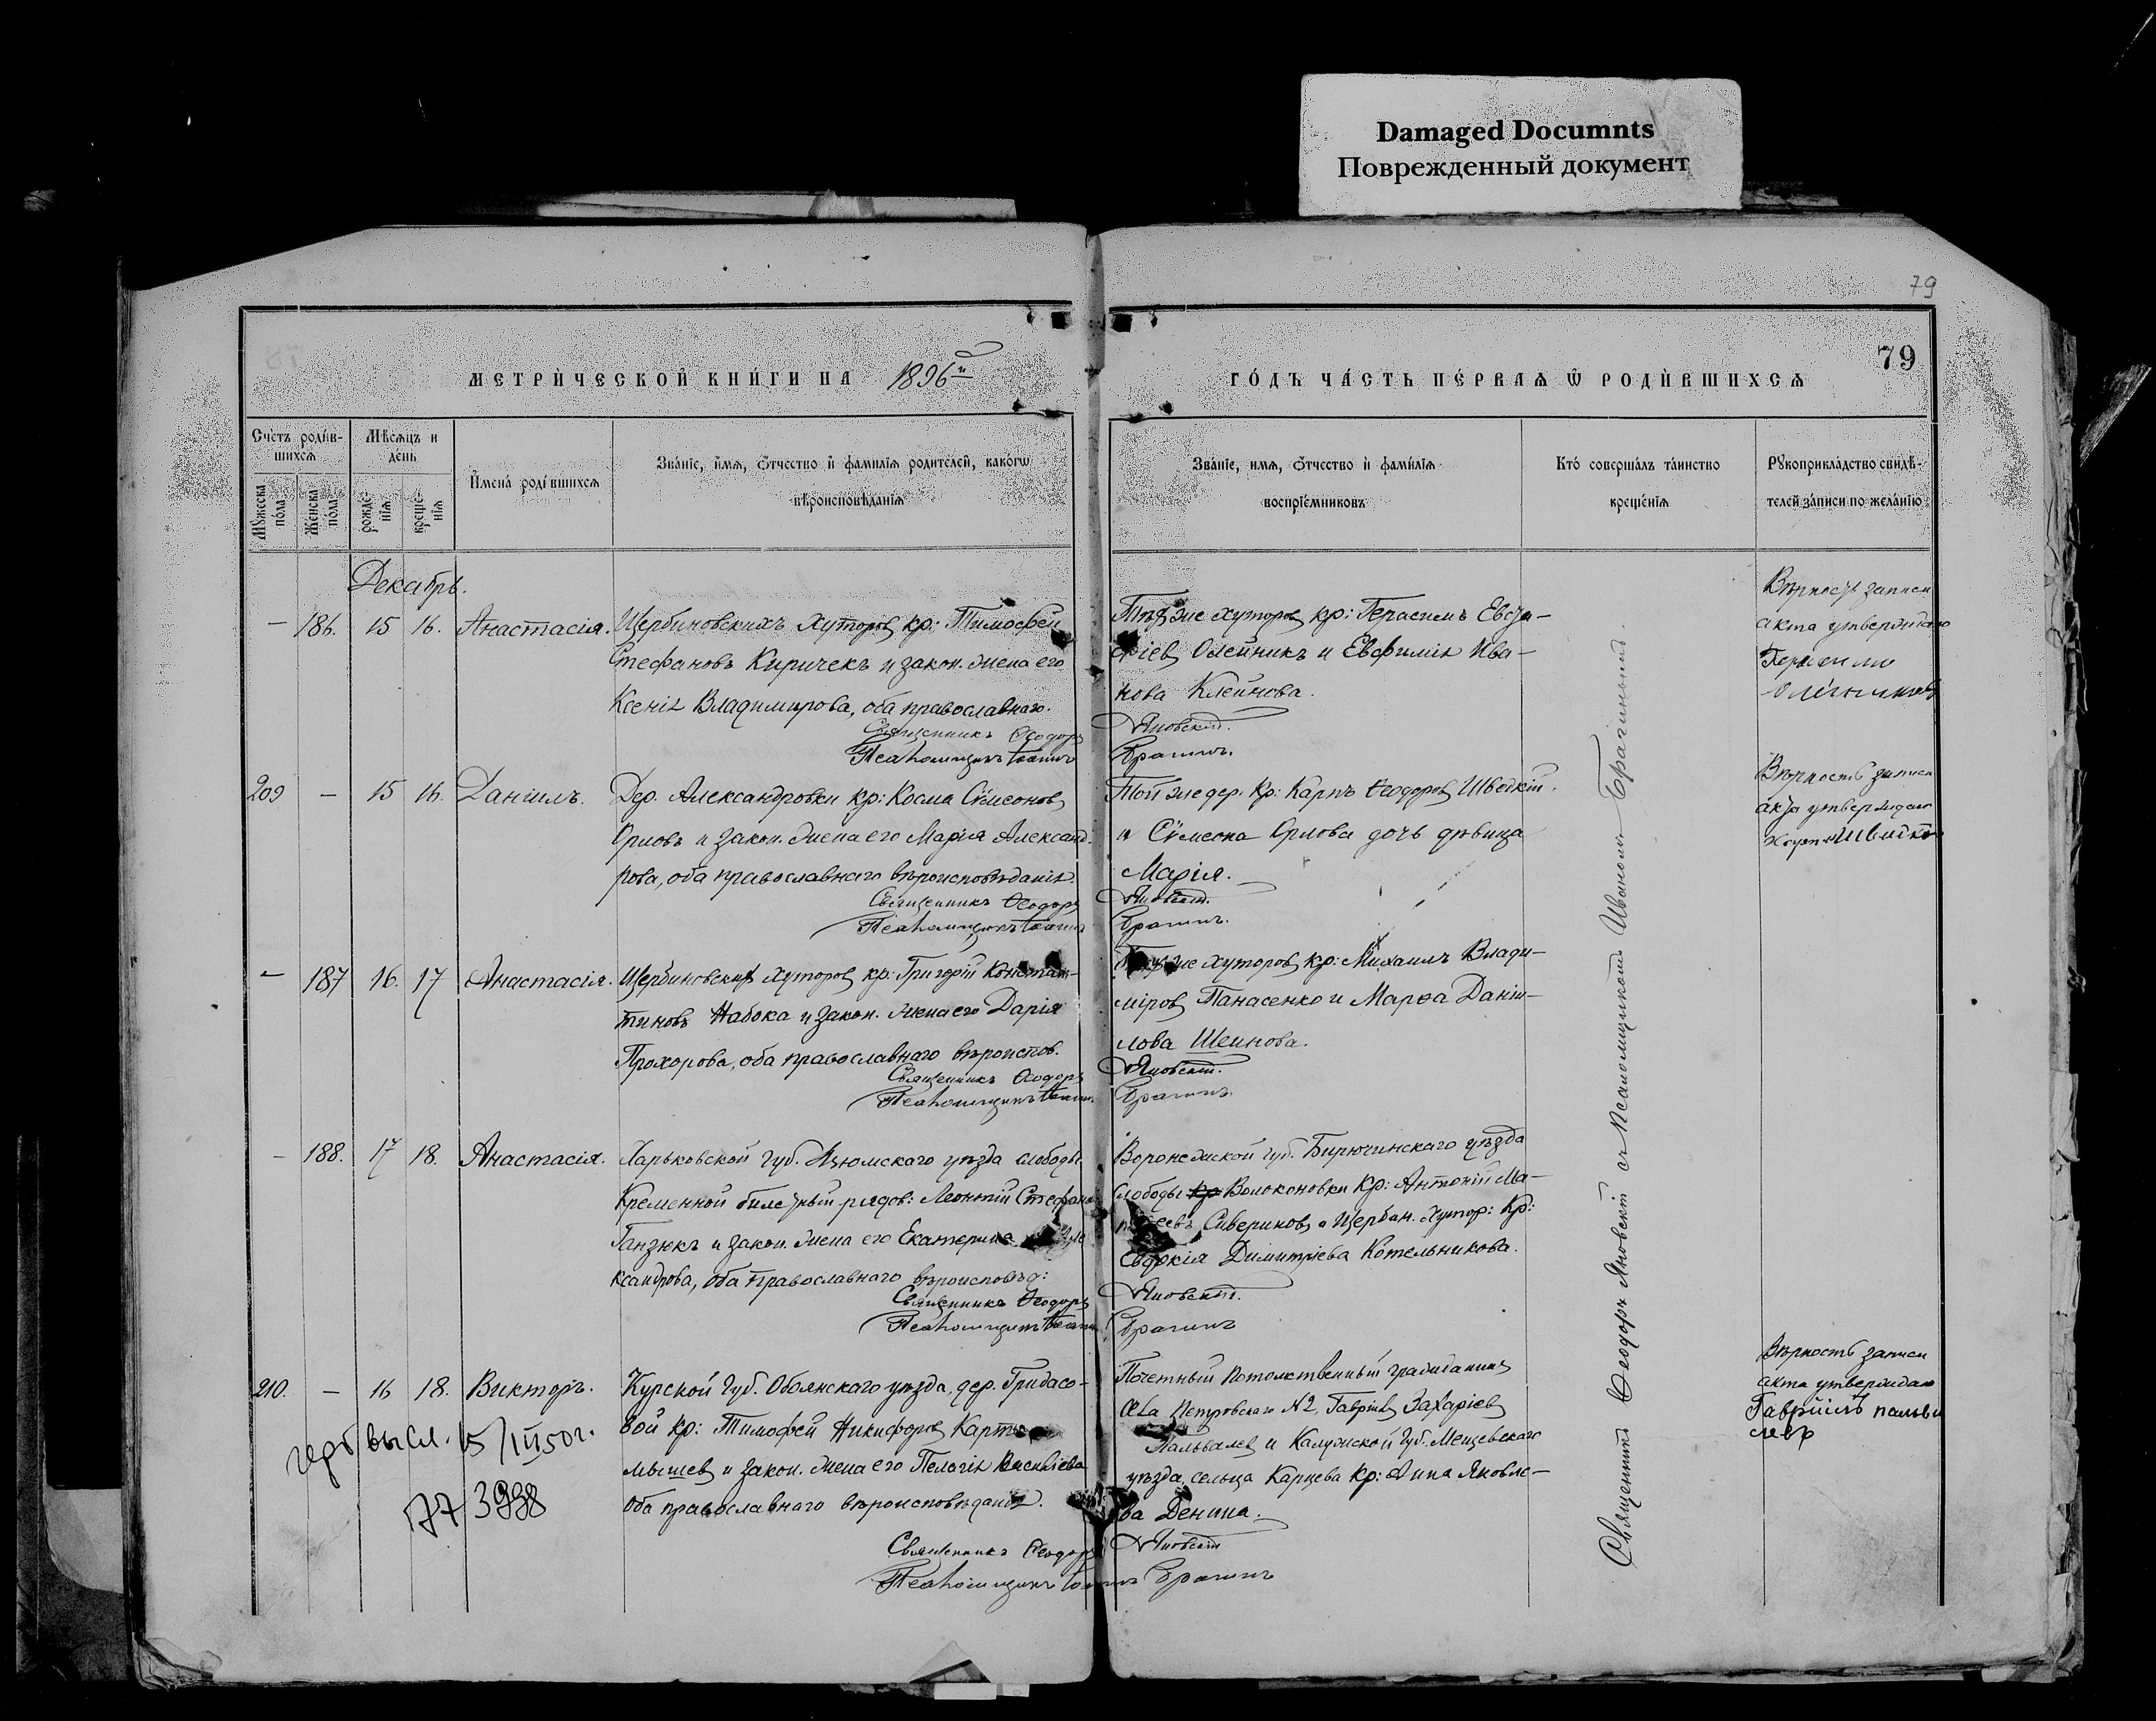 Damaged Documnts
Поврежденный документ
79
79
МЕТРИ́ЧЕСКОЙ КНИ́ГИ НА 1896й
ГО́ДЪ ЧА́СТЬ ПЕ́РВАѦ Ѿ РОДИ́ВШИХСѦ
Сче́тъ роди́в-
шихсѧ
Мѣсѧцъ и
де́нь
Мꙋ́жеска
по́ла
Же́нска
по́ла
рожде́-
нїѧ
креще́-
нїѧ
И҆мена̀ роди́вшихсѧ
Зва́нїе, и҆́мѧ, ѻ҆́тчество и҆ фами́лїѧ роди́телей, како́гѡ
вѣроисповѣ́данїѧ
Зва́нїе, имѧ, ѻ҆́тчество и҆ фами́лїѧ
воспрїе́мниковъ
Кто̀ соверша́лъ та́инство
креще́нїѧ
Рꙋкоприкла́дство свидѣ́-
телей за́писи по жела́нїю
Декабрь.
— 186. 15 16. Анастасія. Щербиновскихъ хуторовъ кр: Тимофей
Стефановъ Киричекъ и закон. жена его
Ксенія Владимирова, оба православнаго.
Священникъ Ѳеодоръ
Псаломщикъ Іоаннъ
Тѣхже хуторовъ кр: Герасимъ Евста-
фіевъ Олейникъ и Евфимія Ива-
нова Клейнова.
Яновскій.
Брагинъ.
Вѣрность записи
акта утверждаю
Герасимъ
209 — 15 16. Даніилъ. Дер. Александровки кр: Косма Сѵмеоновъ
Орловъ и закон. жена его Марія Александ-
рова, оба православнаго вѣроисповѣданія.
Священникъ Ѳеодоръ
Псаломщикъ Іоаннъ
Той же дер. кр: Карпъ Ѳеодоровъ Швейкій.
и Сѵмеона Орлова дочь дѣвица
Марія.
Яновскій.
Брагинъ.
Вѣрность записи
акта утверждаю
— 187 16. 17 Анастасія. Щербиновскихъ хуторовъ кр: Григорій Констан-
тиновъ Набока и закон. жена его Дарія
Прохорова, оба православнаго вѣроиспов.
Священникъ Ѳеодоръ
Псаломщикъ Іоаннъ
Тѣхже хуторовъ кр: Михаилъ Влади-
міровъ Панасенко и Марѳа Даніи-
лова Шеинова.
Яновскій.
Брагинъ.
— 188. 17 18. Анастасія. Харьковской губ. Изюмскаго уѣзда слободы
Кременной билетный рядов: Леонтій Стефановъ
Ганзюкъ и закон. жена его Екатерина Але
ксандрова, оба православнаго вѣроисповѣд:
Священникъ Ѳеодоръ
Псаломщикъ Іоаннъ
Воронежской губ. Бирючинскаго уѣзда
слободы кр Волоконовки кр: Антоній Ма-
Сивериковъ и Щербин. хутор: кр:
Евдокія Димитріева Котельникова.
Яновскій.
Брагинъ
210. — 16 18. Викторъ. Курской губ. Обоянскаго уѣзда, дер. Гридасо-
вой кр: Тимофей Никифоровъ Карта
мышевъ и закон. жена его Пелагія Васильева
оба православнаго вѣроисповѣданія.
Священникъ Ѳеодоръ
Псаломщикъ Іоаннъ
Почетный потомственный гражданинъ
села Петровскаго №2, Гавріилъ Захаріевъ
Пальвалевъ и Калужской губ. Мещевскаго
уѣзда, сельца Карцева кр: Анна Яковле-
ва Денина.
Яновскій
Брагинъ
Вѣрность записи
акта утверждаю
Гавріилъ пальва
левъ
герб высл. 15/III 50 г.
77 3998
Священникъ Ѳеодоръ Яновскій съ псаломщикомъ Иваномъ Брагинымъ.